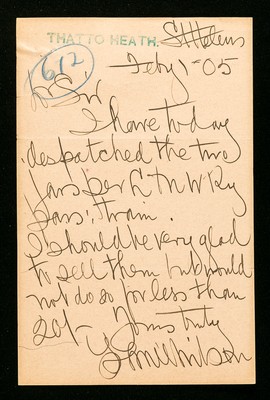 THATTO HEATH. St Helens
612
Feby 1-05
Dr Sir
I have today
despatched the two
jars per L & N W Ry
pass: train.
I should be very glad
to sell them but would
not do so for less than
20/- Yours truly